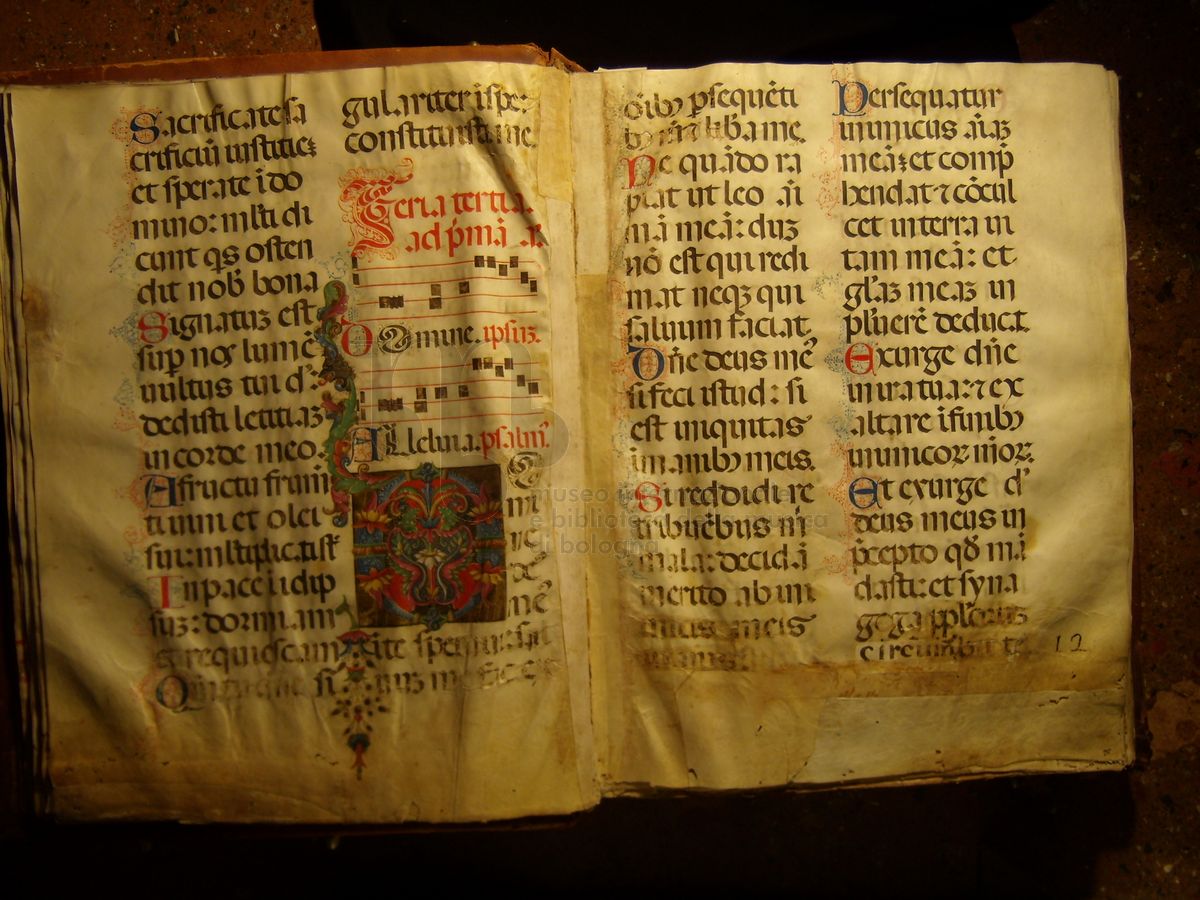 Sacrificate sa
crificiũ iustitie
et sperate ĩ do
mino: mlti di
cunt qs osten
dit nob bona
Signatuz est
sup nos lumẽ
uultus tui d'
dedisti letitiaz
in corde meo.
A fructu frum
ti uini et olei
sui: mltiplic.ti st
In pace ĩ idip
suz: dormiam
et requiescam
Qm tu dne si
gulariter ĩ spe:
constituisti me.
Feria tertia
ad pmã
Domine. ipsuz.
Alleluia. psalm'.
D
mi
ne
de
me
us ĩ te speraui: sal
uuz me fac ex
oĩby psequẽti
by libera me.
Ne quãdo ra
piat ut leo aĩ
mã meã: duz
nõ est qui redi
mat neqz qui
saluum faciat.
Dñe deus me'
si feci istud: si
est iniquitas
ĩ maniby meis.
Si reddidi re
tribuẽtibus m
mala: decidã
merito ab ini
micis meis
inanis
Persequatur
inimicus aĩaz
meã: et comp
hendat ⁊ cõcul
cet in terra ui
tam meã: et
glãz meaz in
pluerẽ deducat.
Exurge dñe
in ira tua: ⁊ ex
altare ĩ finiby
inimicoꝝ meoꝝ.
Et exurge d'
deus meus in
pcepto qd mã
dasti: et syna
goga pploruz
circũdabit te
12
museo
e biblioteca della musica
di bologna